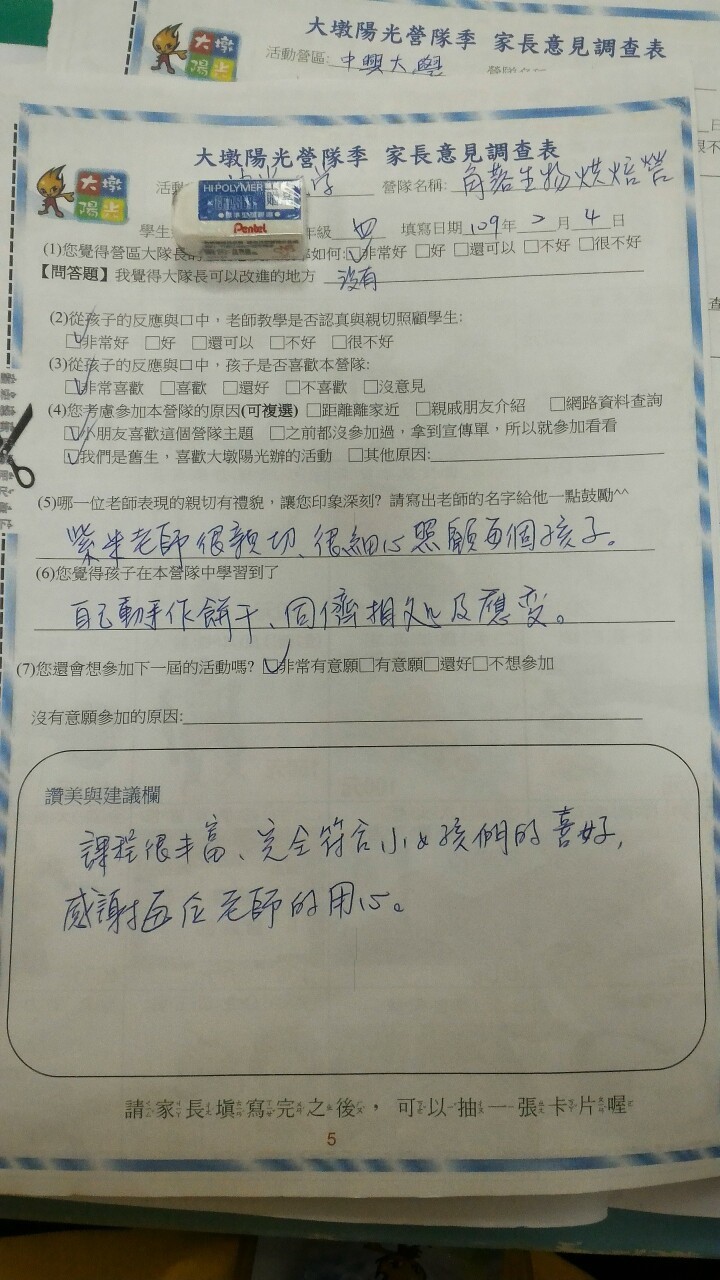 大墩陽光營隊季 家長意見調查表
大墩
陽光
活動營區: 中興大學
大墩陽光營隊季 家長意見調查表
大墩
陽光
活動 學 營隊名稱: 角落生物烘焙營
HI-POLYMER
Pentel
學生 年級 四 填寫日期 109年 2 月 4 日
(1)您覺得營區大隊長的 如何:☑非常好 □好 □還可以 □不好 □很不好
【問答題】我覺得大隊長可以改進的地方 沒有
(2)從孩子的反應與口中，老師教學是否認真與親切照顧學生:
☑非常好 □好 □還可以 □不好 □很不好
(3)從孩子的反應與口中，孩子是否喜歡本營隊:
☑非常喜歡 □喜歡 □還好 □不喜歡 □沒意見
(4)您考慮參加本營隊的原因(可複選) □距離離家近 □親戚朋友介紹 □網路資料查詢
☑小朋友喜歡這個營隊主題 □之前都沒參加過，拿到宣傳單，所以就參加看看
☑我們是舊生，喜歡大墩陽光辦的活動 □其他原因:
(5)哪一位老師表現的親切有禮貌，讓您印象深刻? 請寫出老師的名字給他一點鼓勵^^
老師很親切、很細心照顧每個孩子。
(6)您覺得孩子在本營隊中學習到了
自己動手作餅干、同儕相处及應变。
(7)您還會想參加下一屆的活動嗎? ☑非常有意願□有意願□還好□不想參加
沒有意願參加的原因:
讚美與建議欄
課程很丰富、完全符合小女孩們的喜好,
感謝每位老師的用心。
請家長填寫完之後，可以抽一張卡片喔
5